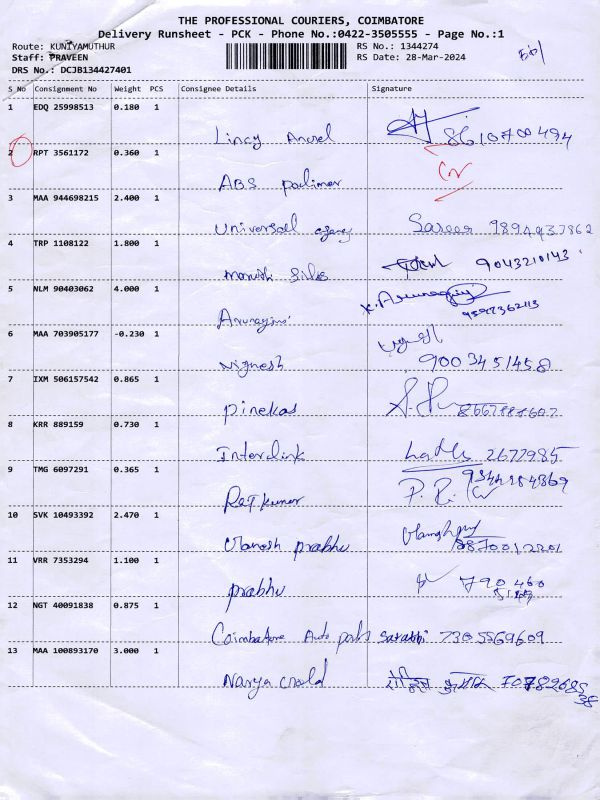 THE PROFESSIONAL COURIERS, COIMBATORE
Delivery Runsheet - PCK - Phone No.:0422-3505555 - Page No.:1
Route: KUNIYAMUTHUR
Staff: PRAVEEN
DRS No.: DCJB134427401
RS No.: 1344274
RS Date: 28-Mar-2024
S No Consignment No Weight PCS Consignee Details Signature
1 EDQ 25998513 0.180 1
Lincy 8610700494
2 RPT 3561172 0.360 1
ABS polimer
3 MAA 944698215 2.400 1
Universal agency Sareer 9894937862
4 TRP 1108122 1.800 1
manish silks 9043210143
5 NLM 90403062 4.000 1
K. Arunagiri
6 MAA 703905177 -0.230 1
Vignesh 9003451458
7 IXM 506157542 0.865 1
Pinekas
8 KRR 889159 0.730 1
Interlink 2677985
9 TMG 6097291 0.365 1
Rajkumar
10 SVK 10493392 2.470 1
prabhu
11 VRR 7353294 1.100 1
prabhu 790460
12 NGT 40091838 0.875 1
Coimbatore Auto parts 7305569609
13 MAA 100893170 3.000 1
70782685
38